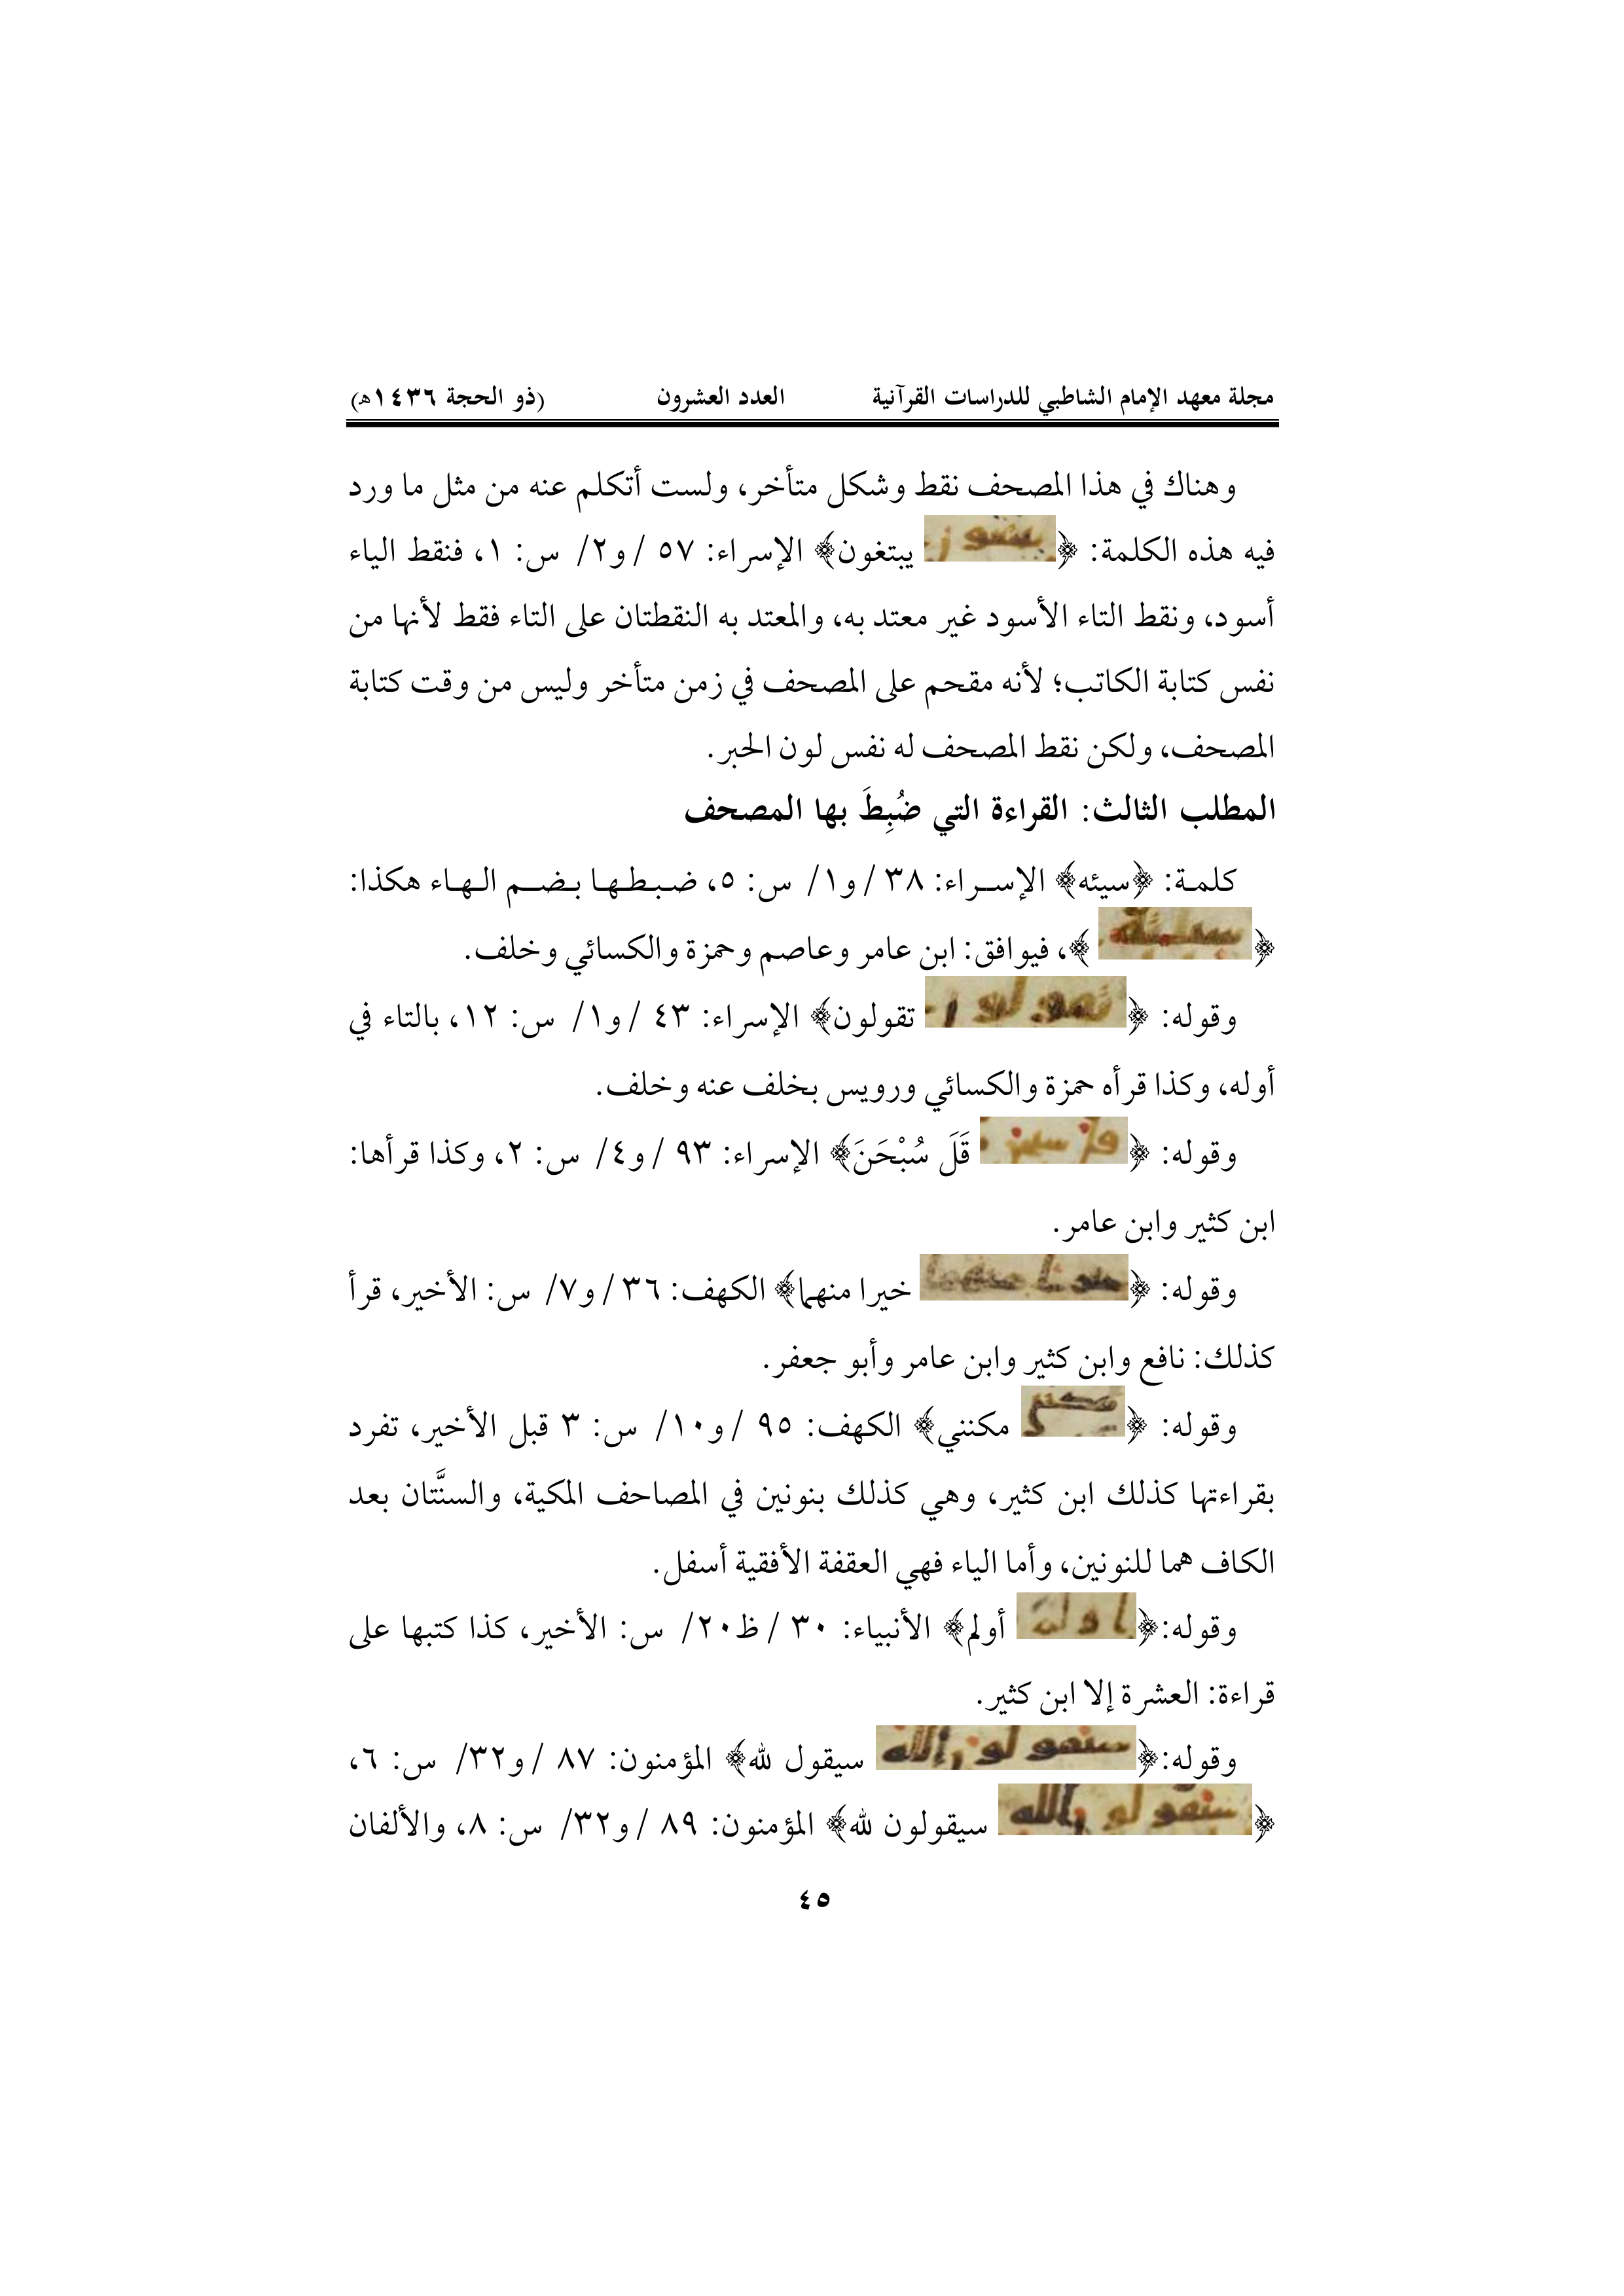 مجلة معهد الإمام الشاطبي للدراسات القرآنية العدد العشرون (ذو الحجة ١٤٣٦هـ)
وهناك في هذا المصحف نقط وشكل متأخر، ولست أتكلم عنه من مثل ما ورد
فيه هذه الكلمة: ﴿ يبتغون﴾ الإسراء: ٥٧ /و٢/ س: ١، فنقط الياء
أسود، ونقط التاء الأسود غير معتد به، والمعتد به النقطتان على التاء فقط لأنها من
نفس كتابة الكاتب؛ لأنه مقحم على المصحف في زمن متأخر وليس من وقت كتابة
المصحف، ولكن نقط المصحف له نفس لون الحبر.
المطلب الثالث: القراءة التي ضُبِطَ بها المصحف
كلمة: ﴿سيئه﴾ الإسراء: ٣٨ /و١/ س: ٥، ضبطها بضم الهاء هكذا:
﴿ ﴾، فيوافق: ابن عامر وعاصم وحمزة والكسائي وخلف.
وقوله: ﴿ تقولون﴾ الإسراء: ٤٣ /و١/ س: ١٢، بالتاء في
أوله، وكذا قرأه حمزة والكسائي ورويس بخلف عنه وخلف.
وقوله: ﴿ قَلَ سُبْحَنَ﴾ الإسراء: ٩٣ /و٤/ س: ٢، وكذا قرأها:
ابن كثير وابن عامر.
وقوله: ﴿ خيرا منهما﴾ الكهف: ٣٦ /و٧/ س: الأخير، قرأ
كذلك: نافع وابن كثير وابن عامر وأبو جعفر.
وقوله: ﴿ مكنني﴾ الكهف: ٩٥ /و١٠/ س: ٣ قبل الأخير، تفرد
بقراءتها كذلك ابن كثير، وهي كذلك بنونين في المصاحف المكية، والسنَّتان بعد
الكاف هما للنونين، وأما الياء فهي العقفة الأفقية أسفل.
وقوله:﴿ أولم﴾ الأنبياء: ٣٠ /ظ٢٠/ س: الأخير، كذا كتبها على
قراءة: العشرة إلا ابن كثير.
وقوله:﴿ سيقول لله﴾ المؤمنون: ٨٧ /و٣٢/ س: ٦،
﴿ سيقولون لله﴾ المؤمنون: ٨٩ /و٣٢/ س: ٨، والألفان
٤٥